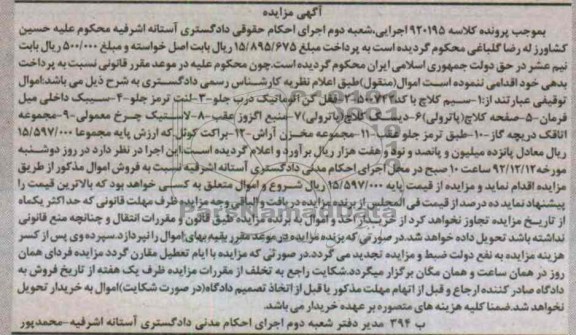 آگهی مزایده
بموجب پرونده کلاسه ۹۲۰۱۹۵ اجرایی،شعبه دوم اجرای احکام حقوقی دادگستری آستانه اشرفیه محکوم علیه حسین
کشاورز له رضا گلباغی محکوم گردیده است به پرداخت مبلغ ۱۵/۸۹۵/۶۷۵ ریال بابت اصل خواسته و مبلغ ۵۰۰/۰۰۰ ریال بابت
نیم عشر در حق دولت جمهوری اسلامی ایران محکوم گردیده است.چون محکوم علیه در موعد مقرر قانونی نسبت به پرداخت
بدهی خود اقدامی ننموده است اموال(منقول)طبق اعلام نظریه کارشناس رسمی دادگستری به شرح ذیل می باشد:اموال
توقیفی عبارتند از:۱-سیم کلاچ با کد ۲-قفل کن اتوماتیک درب جلو-۳-لنت ترمز جلو-۴-سیبک داخلی میل
فرمان-۵-صفحه کلاچ(پاترولی)۶-دیسک کلاچ(پاترولی)۷-منبع اگزوز عقب-۸-لاستیک چرخ معمولی-۹-مجموعه
اتاقک دریچه گاز-۱۰-طبق ترمز جلو ۱۱-مجموعه مخزن آراش-۱۲-براکت کوئل که ارزش پایه مجموعا ۱۵/۵۹۷/۰۰۰
ریال معادل پانزده میلیون و پانصد و نود و هفت هزار ریال برآورد و اعلام گردیده است.این اجرا در نظر دارد در روز دوشنبه
مورخه ۹۲/۱۲/۱۲ ساعت ۱۰ صبح در محل اجرای احکام مدنی دادگستری آستانه اشرفیه نسبت به فروش اموال مذکور از طریق
مزایده اقدام نماید و مزایده از قیمت پایه ۱۵/۵۹۷/۰۰۰ ریال شروع و اموال متعلق به کسی خواهد بود که بالاترین قیمت را
پیشنهاد نماید ده درصد از قیمت فی المجلس از برنده مزایده دریافت و الباقی وجه مزایده ظرف مهلت قانونی که حداکثر یکماه
از تاریخ مزایده تجاوز نخواهد کرد از خریدار اخذ و اموال به برنده مزایده طبق قانون و مقررات انتقال و چنانچه منع قانونی
نداشته باشد تحویل داده خواهد شد.در صورتی که برنده مزایده در موعد مقرر بقیه بهای اموال را نپردازد.سپرده وی پس از کسر
هزینه مزایده به نفع دولت ضبط و مزایده تجدید می گردد.در صورتی که مزایده با ایام تعطیل مقارن گردد مزایده فردای همان
روز در همان ساعت و همان مکان برگزار میگردد.شکایت راجع به تخلف از مقررات مزایده ظرف یک هفته از تاریخ فروش به
دادگاه صادر کننده ارجاع و قبل از اتهام مهلت مذکور یا قبل از اتخاذ تصمیم دادگاه(در صورت شکایت)اموال به خریدار تحویل
نخواهد شد.ضمنا کلیه هزینه های متصوره بر عهده خریدار می باشد.
ب ۳۹۴ مدیر دفتر شعبه دوم اجرای احکام مدنی دادگستری آستانه اشرفیه-محمدپور